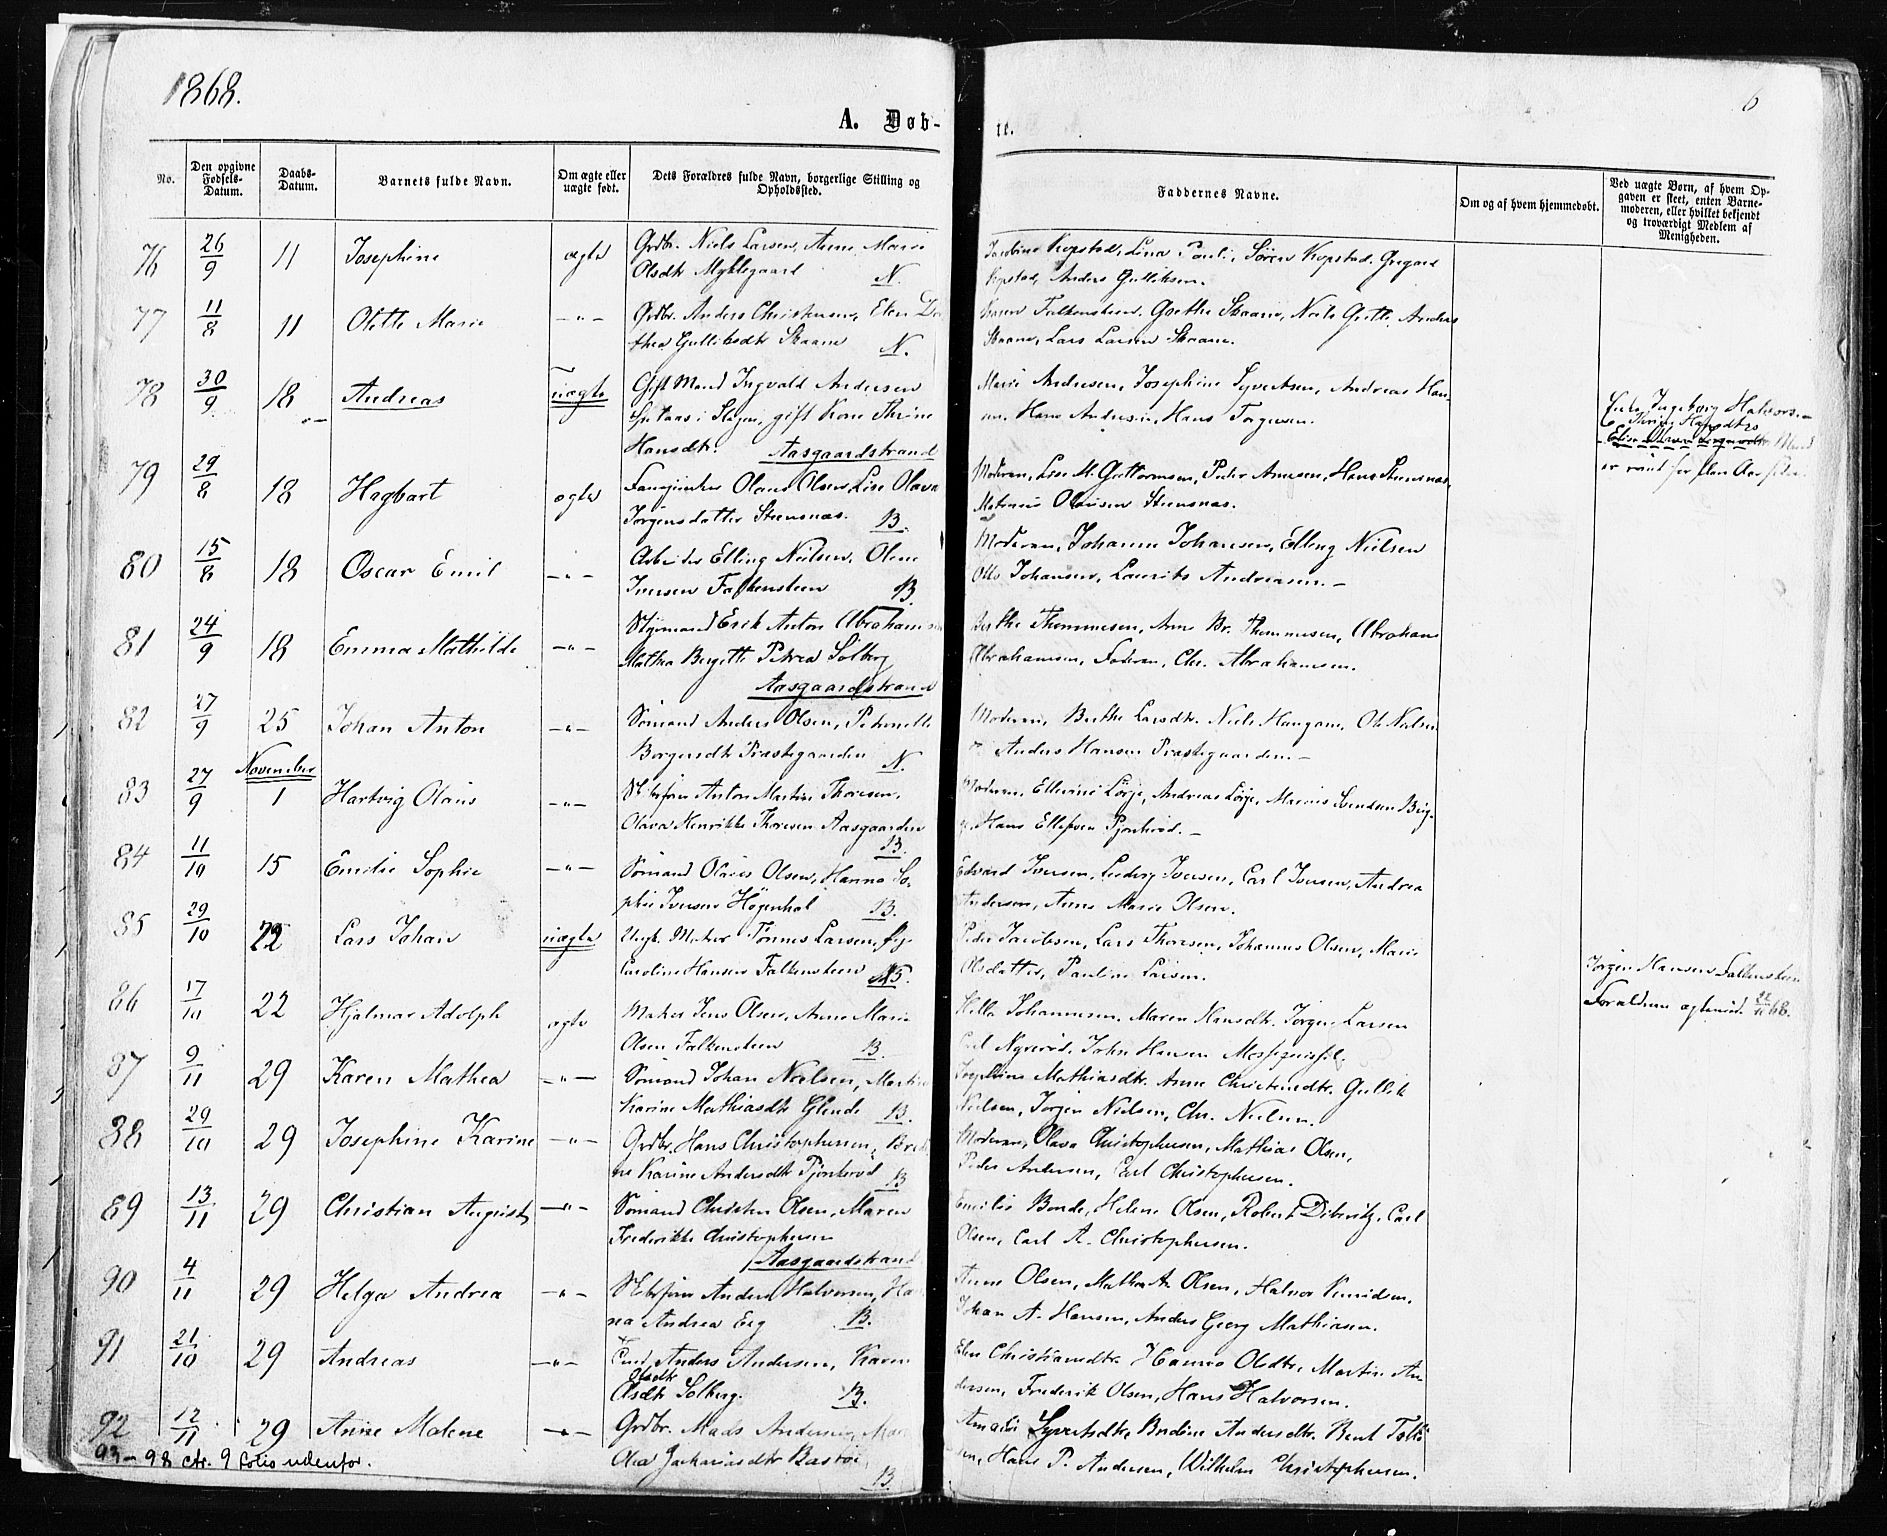 1868.
6
A. Døb-
te.
No.
Den opgivne Fødsels-Datum.
Daabs-Datum.
Barnets fulde Navn.
Om ægte eller uægte født.
Dets Forældres fulde Navn, borgerlige Stilling og Opholdssted.
Faddernes Navne.
Om og af hvem hjemmedøbt.
Ved uægte Børn, af hvem Opgaven er skeet, enten Barnemoderen, eller hvilket bekjendt og troværdigt Medlem af Menigheden.
76 26/9 11 Josephine ægte Grdbr. Niels Larsen, Anne Marie
Olsdtr Myklegaard N.
Kopstad, Lina Pauli, Søren Kopstad, Gregard
Kopstad, Anders Gulliksen.
77 11/8 11 Olette Marie -"- Grdbr. Anders Christensen, Elen Do
thea Gulliksdtr Skaane N.
Karen Falkensteen, Goethe Skaane, Niels Anders
Skaane, Lars Larsen Skaane.
78 30/9 18 Andreas uægte Gift Mand Ingvald Andersen
i Slagen, gift Kone Thrine
Hansdtr. Aasgaardstrand
Marie Andresen, Josephine Syvertsen, Andreas Han-
sen, Hans Andersen, Hans Torgersen.
Enke Ingeborg Halvors-
Thrine Hansdtrs
Mand
er reist for flere Aar siden.
79 29/8 18 Hagbart ægte Olaus Olsen, Lise Olava
Jørgensdatter Steensnæs. B.
Moderen, Lise M. Guttormsen, Peder Arnesen, Hans Steensnæs,
Olausen Steensnæs.
80 15/8 18 Oscar Emil -"- Arbeider Elling Nielsen, Oline
Iversen Falkensteen B.
Moderen, Johanne Johansen, Elling Nielsen
Otto Johansen, Laurits Andreasen.-
81 24/9 18 Emma Mathilde -"- Styrmand Erik Anton Abrahamsen
Mathea Bergitte Petrea Solberg
Aasgaardstrand
Berthe Thommesen, Anne Br. Thommesen, Abraham
Abrahamsen, Faderen, Chr. Abrahamsen.
82 27/9 25 Johan Anton -"- Sømand Anders Olsen, Petrenelle
Borgersdtr Præstegaarden N.
Moderen, Berthe Larsdtr. Niels Haugane, Ole Nielsen
Anders Hansen Præstegaarden.-
November
83 27/9 1 Hartvig Olaus -"- Anton Martin Thoresen,
Olava Henrikke Thoresen Aasgaarden
B.
Moderen, Ellevine Lørje, Andreas Lørje, Marius Svendsen
Hans Ellefsen Pjonkerød.-
84 11/10 15 Emilie Sophie -"- Sømand Olaus Olsen, Hanna So-
phie Iversen Høgenhal B.
Edvard Iversen, Ludvig Iversen, Carl Iversen, Andrea
Andersen, Anne Marie Olsen.
85 29/10 22 Lars Johan uægte Ungk. Matros Tønnes Larsen, Pige
Caroline Hansen Falkensteen B.
Peder Jacobsen, Lars Thoresen, Johannes Olsen, Marie
Olsdatter, Pauline Larsen.
Jørgen Hansen Falkensteen
Forældrene ægteviede 22/11 68.
86 17/10 22 Hjalmar Adolph ægte Matros Jens Olsen, Anne Marie
Olsen Falkensteen B.
Helle Johannesen, Maren Hansdtr. Jørgen Larsen
Carl Nyrerød, John Hansen
87 9/11 29 Karen Mathea -"- Sømand Johan Nielsen, Martine
Karine Mathiasdtr Glende B.
Josephine Mathiasdtr. Anne Christensdtr. Gullik
Nielsen, Jørgen Nielsen, Chr. Nielsen.
88 29/10 29 Josephine Karine -"- Grdbr. Hans Christophersen,
ne Karine Andersdtr Pjonkerød B
Moderen, Olava Christophersen, Mathias Olsen,
Peder Andersen, Carl Christophersen.
89 13/11 29 Christian August -"- Sømand Christen Olsen, Maren
Frederikke Christophersen
Aasgaardstrand
Emilie Bonde, Helene Olsen, Robert Dibwitz, Carl
Olsen, Carl A. Christophersen.
90 4/11 29 Helga Andrea -"- Anders Halvorsen, Ha
na Andrea Eeg B.
Anne Olsen, Mathea A. Olsen, Halvor
Johan A. Hansen, Anders Georg Mathiasen.
91 21/10 29 Andreas -"- Anders Andersen, Karen
Olsdtr
Olsdtr Solberg. B.
Elen Christiansdtr. Hanna Olsdtr, Martin An
dersen, Frederik Olsen, Hans Halvorsen.
92 12/11 29 Anne Malene -"- Grdbr. Mads Andersen,
Olea Zachariasdtr Bastø
B.
Amalie Syvertsdtr, Andersdtr. Bent
Hans P. Andersen, Wilhelm Christophersen.
93-98 cfr. 9 folio udenfor.